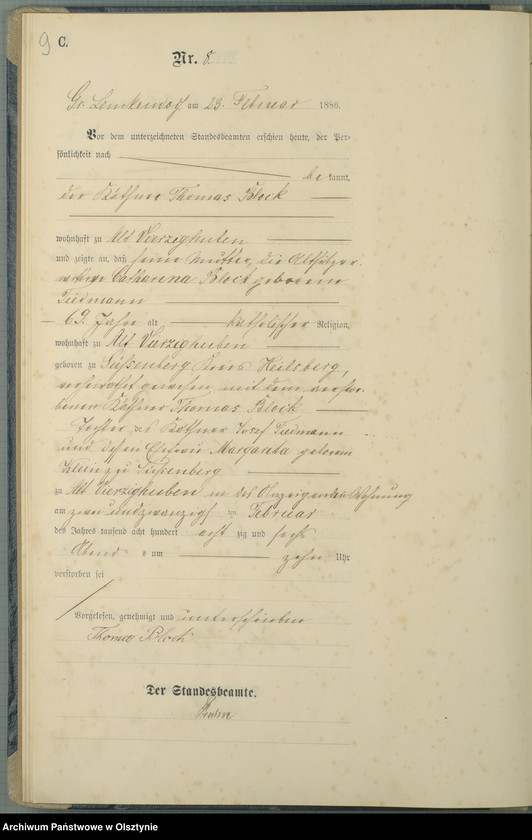 9 C.
Nr. 8.
Gr. Lemkendorf am 23. Februar 1886.
Vor dem unterzeichneten Standesbeamten erschien heute, der Per-
sönlichkeit nach
be kannt,
der Käthner Thomas Block
wohnhaft zu Alt Vierzighuben
und zeigte an, daß seine Mutter, die Altsitzer-
wittwe Catharina Block geborene
Tiedmann
69 Jahre alt katholischer Religion,
wohnhaft zu Alt Vierzighuben
geboren zu Süssenberg Kreis Heilsberg,
verheirathet gewesen mit dem verstor-
benen Käthner Thomas Block
Tochter des Käthner Josef Tiedmann
und dessen Ehefrau Margareta geborene
Klein zu Süssenberg
zu Alt Vierzighuben in des Anzeigenden Wohnung
am zwei und zwanzigsten Februar
des Jahres tausend acht hundert acht zig und sechs
Abends um zehn Uhr
verstorben sei
Vorgelesen, genehmigt und unterschrieben
Thomas Block
Der Standesbeamte.
Archiwum Państwowe w Olsztynie